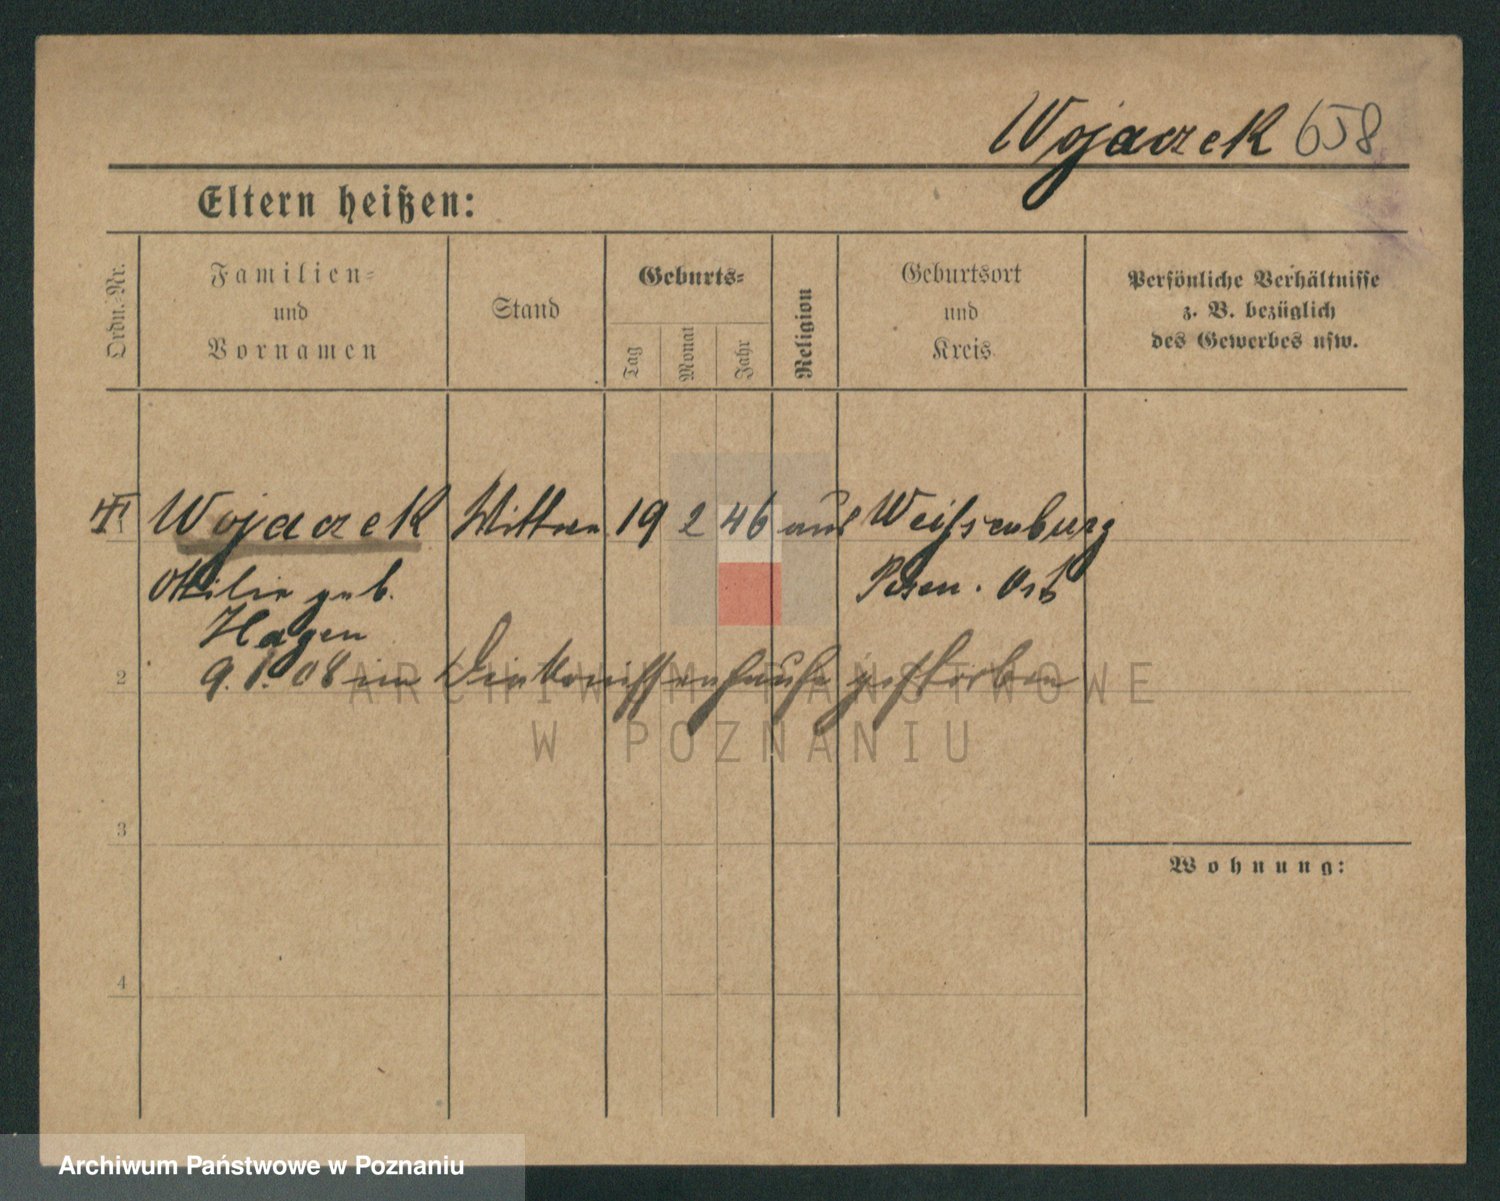 Wojaczek 658
Eltern heißen:
Ordn.-Nr.
Familien-
und
Vornamen
Stand
Geburts-
Tag
Monat
Jahr
Religion
Geburtsort
und
Kreis
Persönliche Verhältnisse
z. B. bezüglich
des Gewerbes usw.
1 Wojaczek Wittwe 19 2 46 Weißenburg
Otilie geb. Posen. Ost
Hagen
9. 1. 08 im Diakonissenhause gestorben
2
3
4
Wohnung:
ARCHIWUM PAŃSTWOWE
W POZNANIU
Archiwum Państwowe w Poznaniu